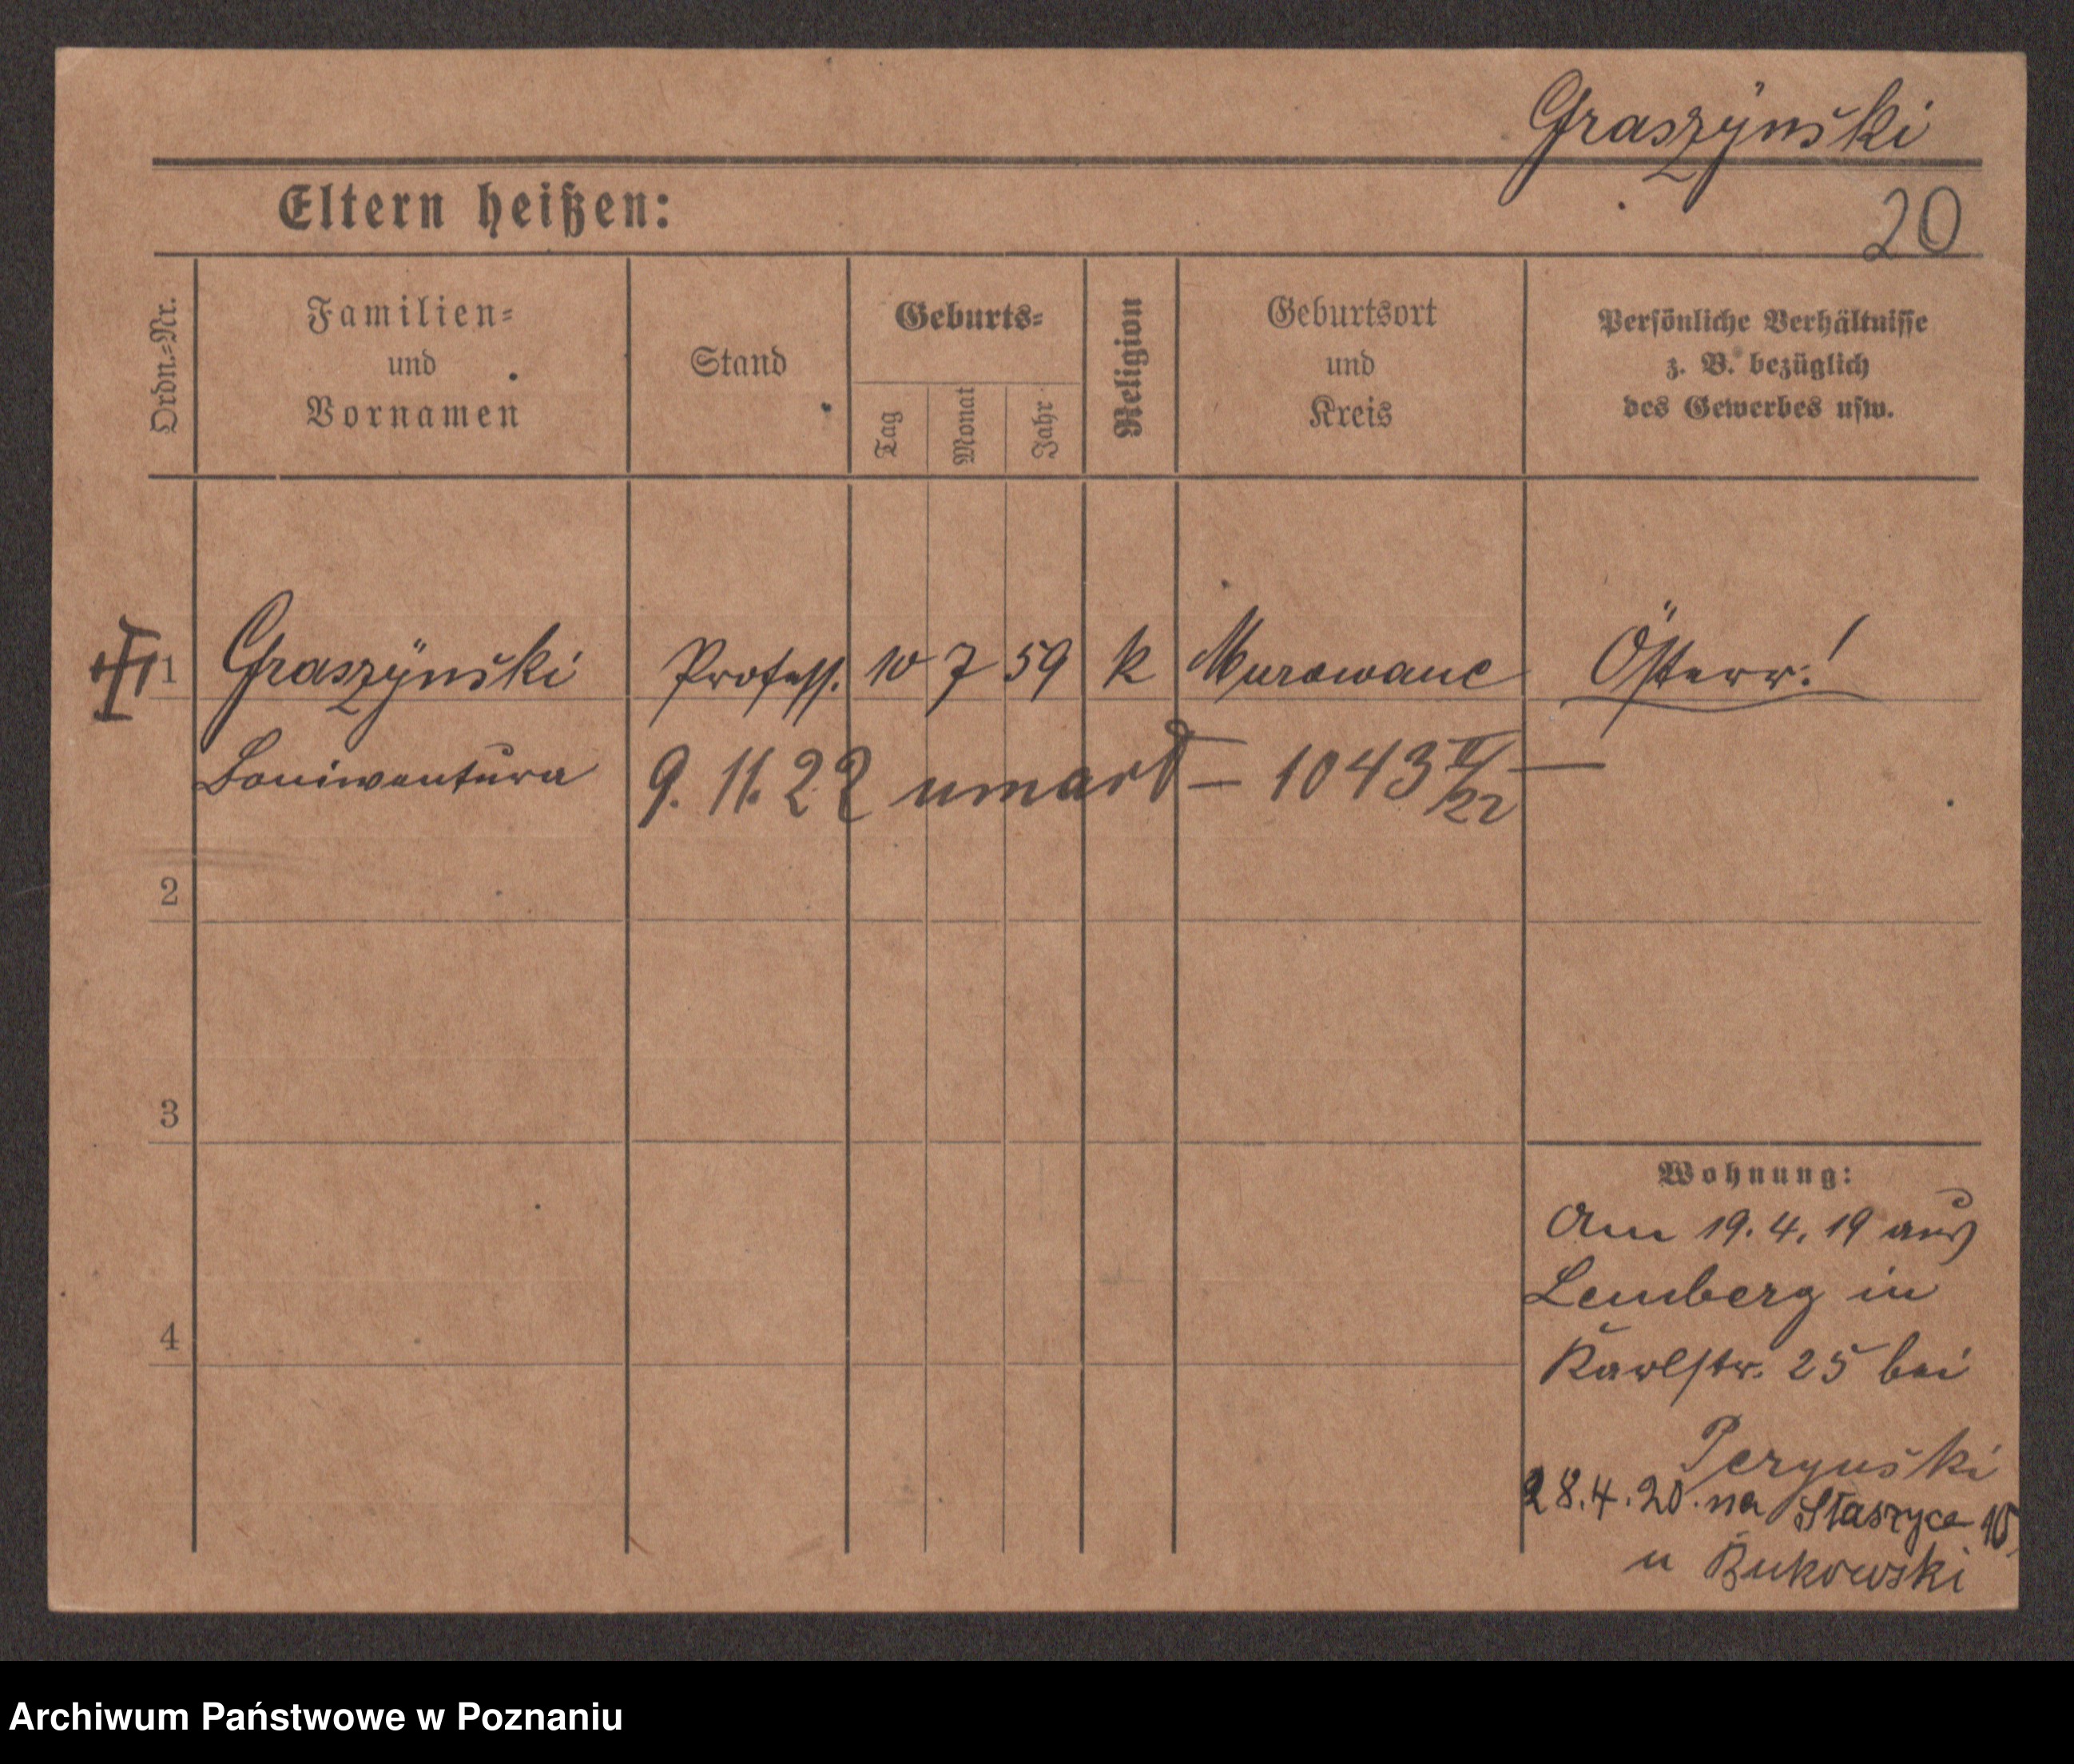 Graszÿnski
20
Eltern heißen:
Ordn.=Nr.
Familien=
und
Vornamen
Stand
Geburts=
Tag
Monat
Jahr
Religion
Geburtsort
und
Kreis
Persönliche Verhältnisse
z. B. bezüglich
des Gewerbes usw.
1 Graszÿnski Profess. 10 7 59 k Murowane Österr.!
Boniwentura 9. 11. 22 umarł — 1043 II/22 —
2
3
4
Wohnung:
Am 19. 4. 19 aus
Lemberg in
Karlstr. 25 bei
28.4.20. na Staszyca 10
u Bukowski
Archiwum Państwowe w Poznaniu